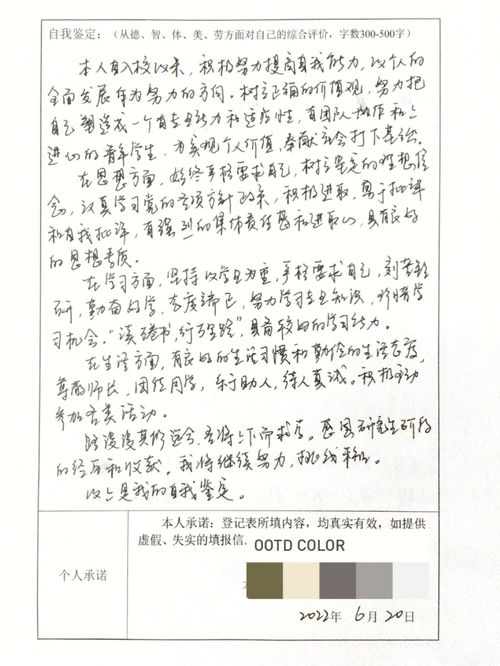 自我鉴定：（从德、智、体、美、劳方面对自己的综合评价，字数300-500字）
本人自入校以来，积极努力提高自我能力，以个人的
全面发展作为努力的方向。树立正确的价值观，努力把
自己塑造成一个有专业能力和适应性，有团队协作和上
进心的青年学生，为实现个人价值，奉献社会打下基础。
在思想方面，始终严格要求自己，树立坚定的理想信
念，认真学习党的各项方针政策，积极进取，勇于批评
和自我批评，有强烈的集体责任感和进取心，具有良好
的思想素质。
在学习方面，坚持以学业为重，严格要求自己，刻苦钻
研，勤奋好学，态度端正，努力学习专业知识，珍惜学
习机会。“读万卷书，行万里路”，具有较好的学习能力。
在生活方面，有良好的生活习惯和勤俭的生活态度，
尊敬师长，团结同学，乐于助人，待人真诚。积极主动
参加各类活动。
路漫漫其修远兮，吾将上下而求索。感恩研究生阶段
的经历和收获。我将继续努力，挑战未来。
以上是我的自我鉴定。
本人承诺：登记表所填内容，均真实有效，如提供
虚假、失实的填报信
OOTD COLOR
个人承诺
2022年 6月 20日